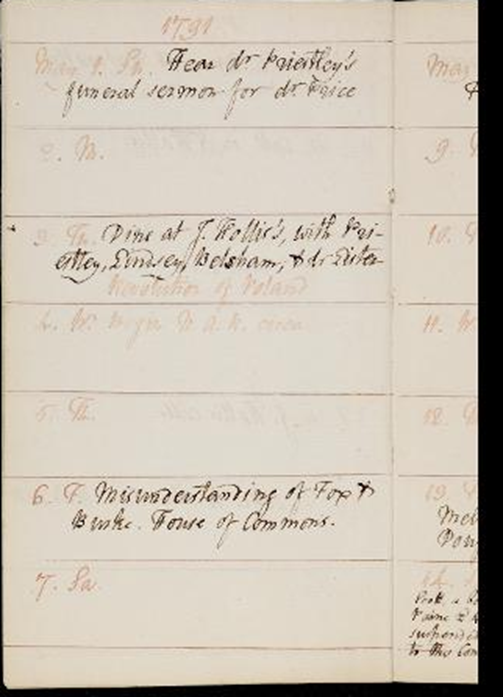 1791
May 1. Su. Hear dr Priestley's
funeral sermon for dr Price
2. M.
3. Tu. Dine at J. Hollis's, with Pri-
estley, Lindsey, Belsham, & dr Lister
Revolution of Poland
4. W.
5. Th.
6. F. Misunderstanding of Fox &
Burke. House of Commons.
7. Sa.
May
9.
10.
11. W
12.
13.
14.
Paine
to the